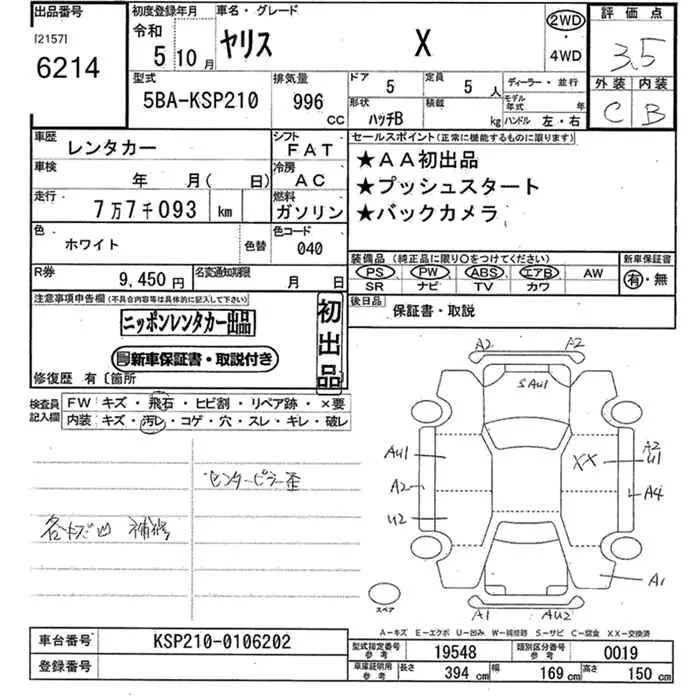 出品番号 初度登録年月 車名・グレード 評価点
[2157]
6214
令和 5 10月 ヤリス X 2WD ・ 4WD 3.5
型式 排気量 ドア 5 定員 5人 ディーラー・並行 外装 内装
5BA-KSP210 996 CC 形状 ハッチB 積載 kg モデル年式 年 ハンドル 左・右 C B
車歴 レンタカー シフト FAT セールスポイント(正常に機能するものに限ります)
車検 年 月( 日) 冷房 AC ★AA初出品
走行 7万7千093 km 燃料 ガソリン ★プッシュスタート
★バックカメラ
色 ホワイト 色替 色コード 040
装備品(純正品に限り○をつけてください) 新車保証書
R券 9,450円 名変通知期限 月 日 PS PW ABS エアB AW 有・無
SR ナビ TV カワ
注意事項申告欄(不具合内容等は具体的に記入して下さい) 後日品 保証書・取説
ニッポンレンタカー出品 初出品
新車保証書・取説付き
修復歴 有〔箇所
検査員記入欄 FW キズ・飛石・ヒビ割・リペア跡・×要
内装 キズ・汚レ・コゲ・穴・スレ・キレ・破レ
センターピラー歪
各キズ凹 補修
A2 A2
SAU1
AU1 XX A2 U1
A2 A4
U2
A1
スペア A1 AU2
A-キズ E-エクボ U-凹み W-補修跡 S-サビ C-腐食 XX-交換済
車台番号 KSP210-0106202 型式指定番号 参考 19548 類別区分番号 参考 0019
登録番号 車庫証明用 参考 長さ 394cm 幅 169cm 高さ 150cm